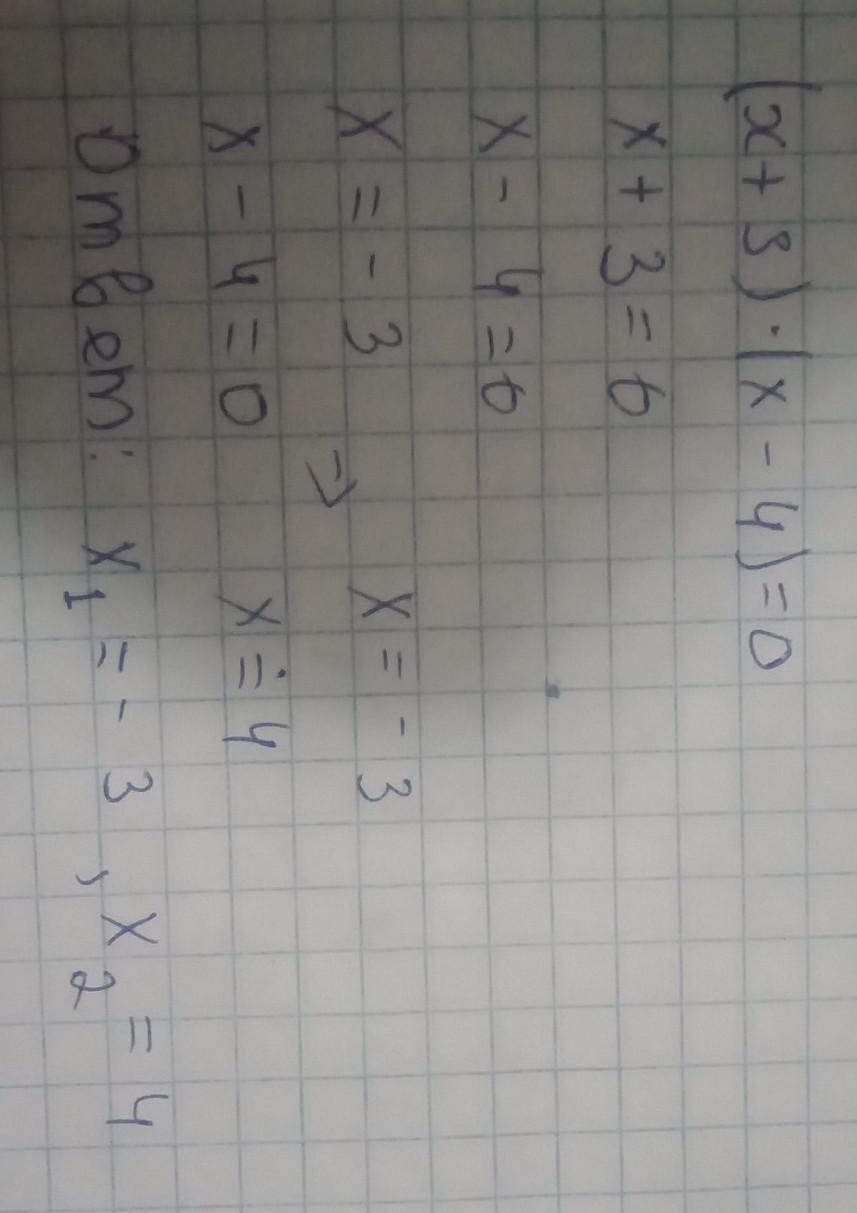 (x+3)·(x-4)=0
x+3=0
x-4=0
x=-3 ⇒ x=-3
x-4=0 x=4
Ответ: x₁=-3, x₂=4